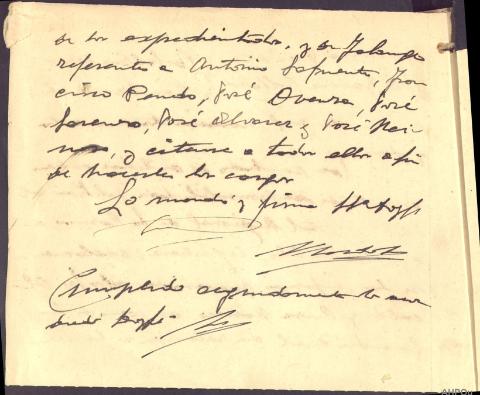 de los expedientados, y de Falange
referente a Antonio Lafuente, Fran
cisco Pando, José Ovenza, José
Lorenzo, José Alvarez y José Rei
y citense a todos ellos a fin
de hacerles los cargos
Lo mandó y firma
Cumplido seguidamente lo man
dado doyfe.
AHPOu